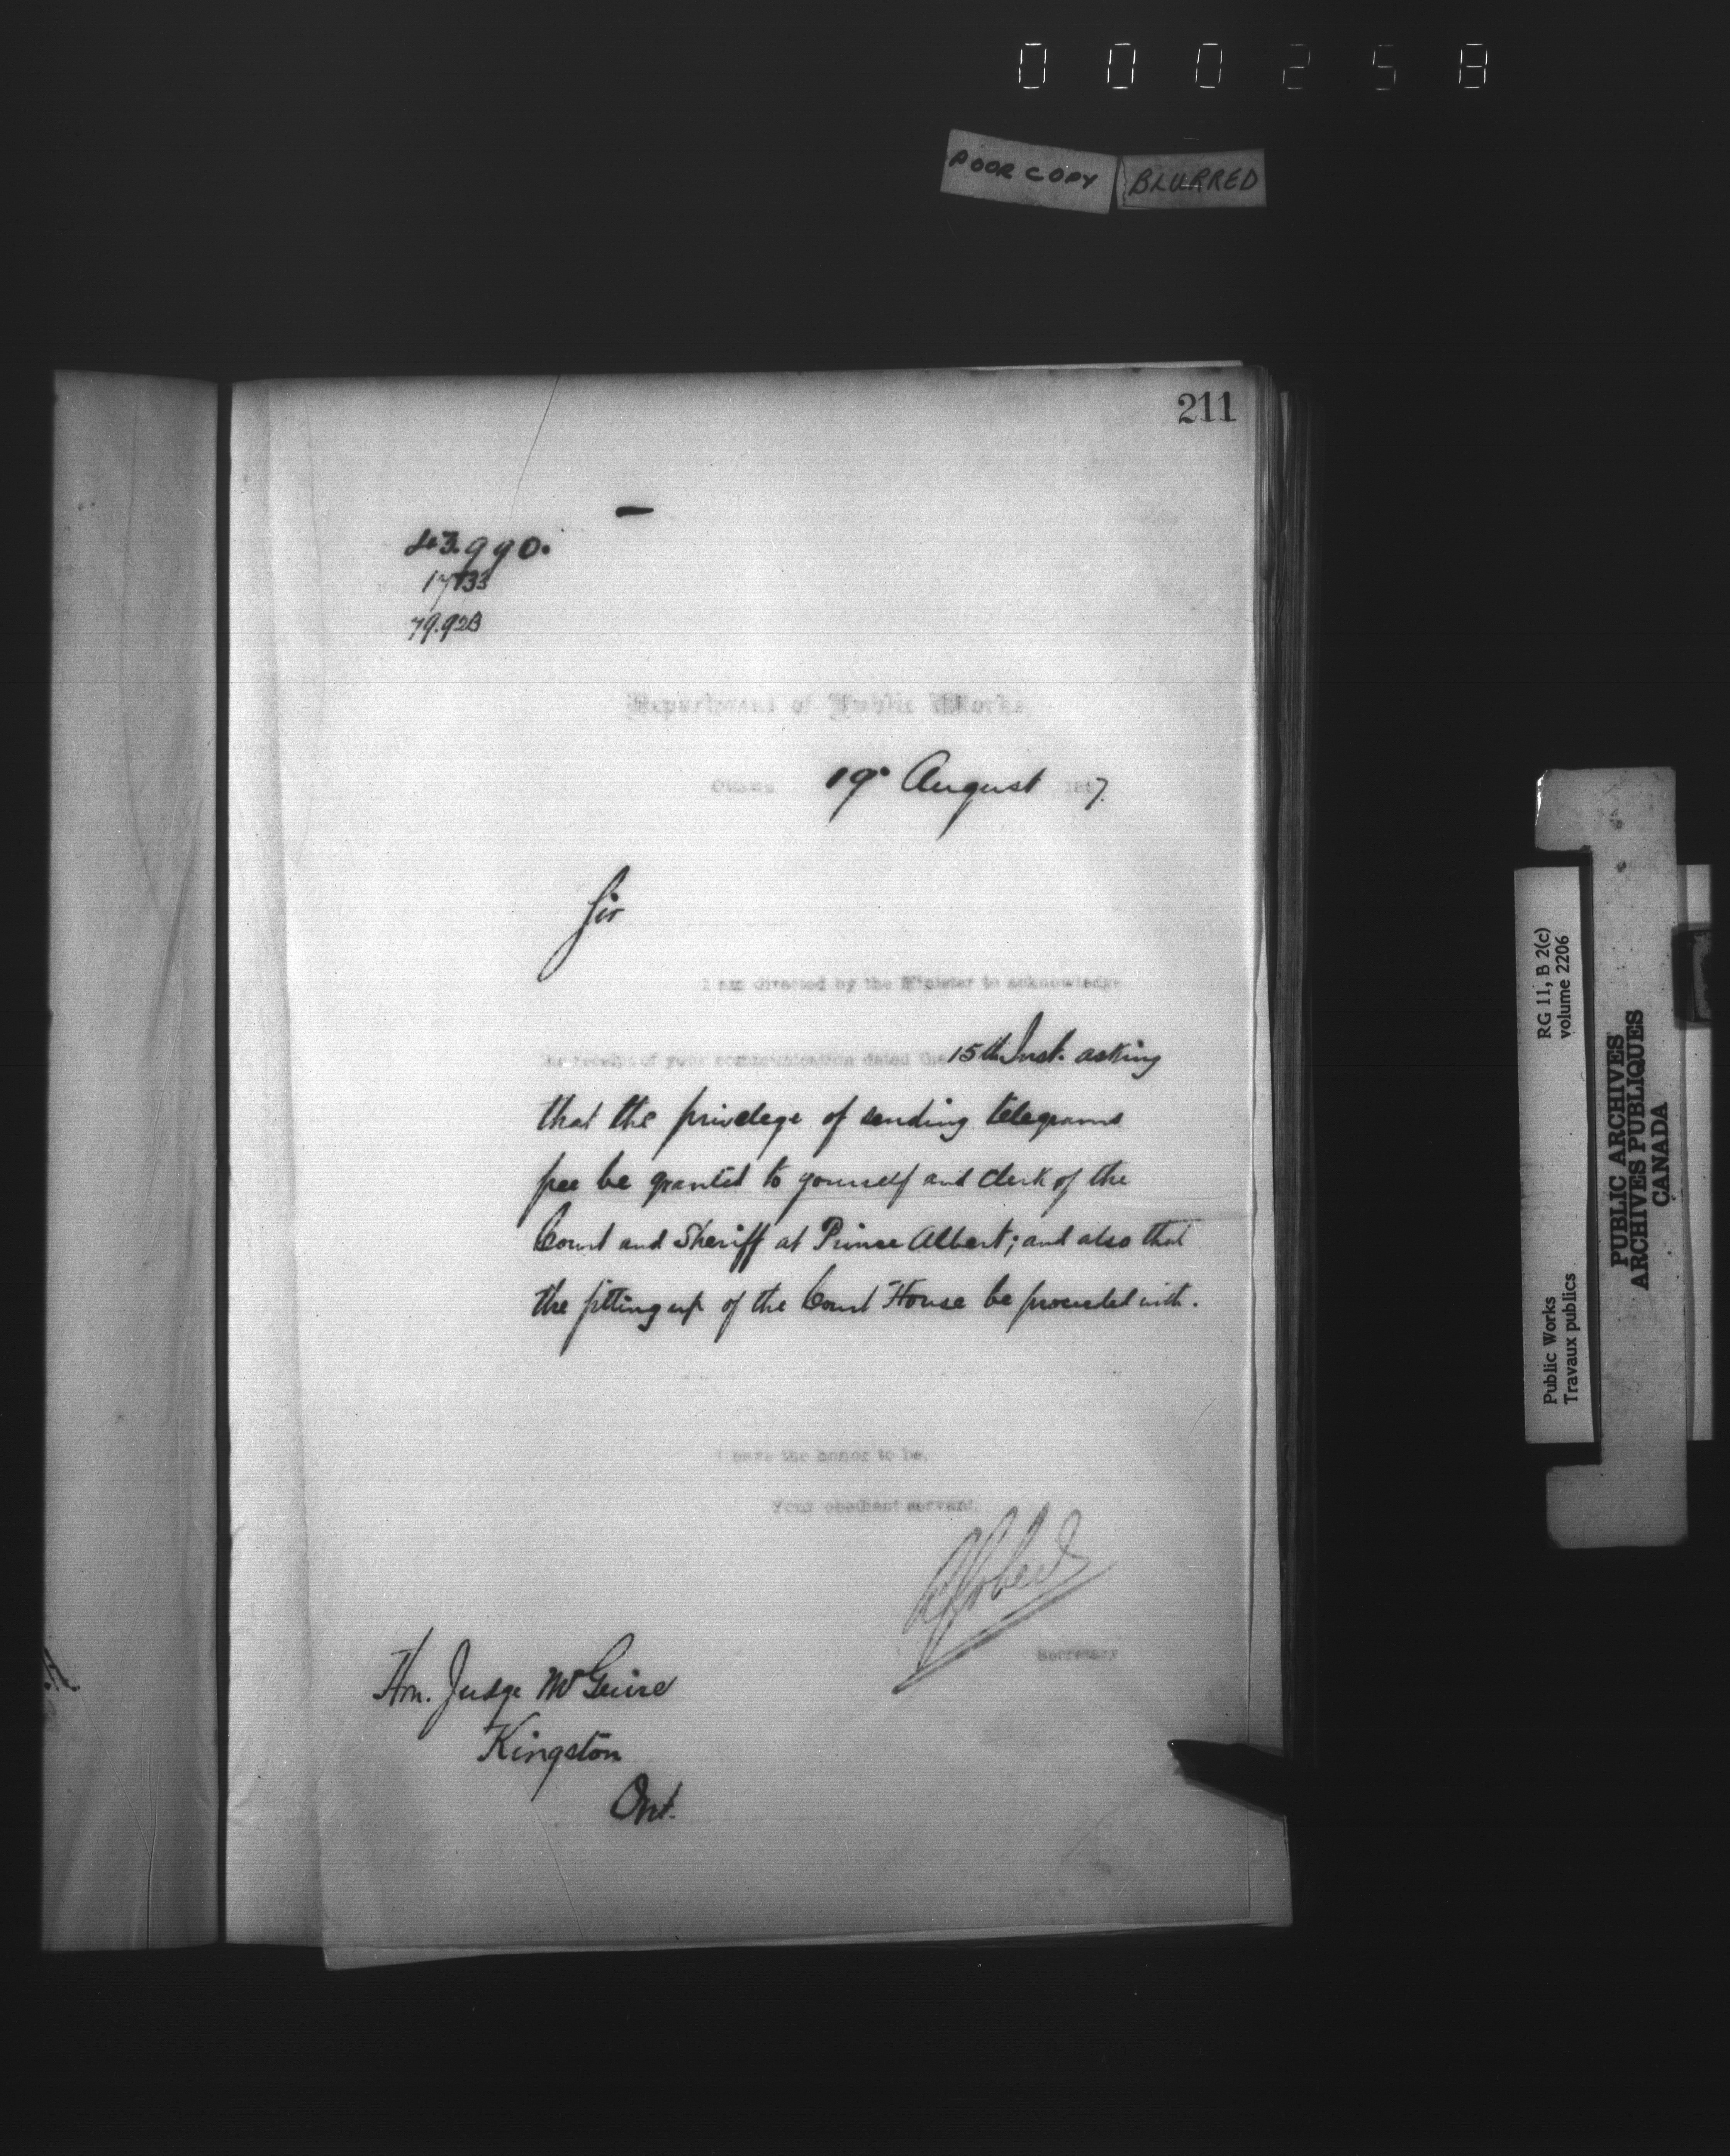 000258
POOR COPY BLURRED
211
43.990.
17133
79.92B
Department of Public Works
Ottawa 19th August 1887.
Sir
I am directed by the Minister to acknowledge
the receipt of your communication dated the 15th Inst. asking
that the privelege of sending telegrams
free be granted to yourself and clerk of the
Court and Sheriff at Prince Albert; and also that
the fitting up of the Court House be proceeded with.
I have the honor to be,
Your obedient servant,
Secretary
Hon. Judge McGuire
Kingston
Ont.
RG 11, B 2(c)
volume 2206
Public Works
Travaux publics
PUBLIC ARCHIVES
ARCHIVES PUBLIQUES
CANADA